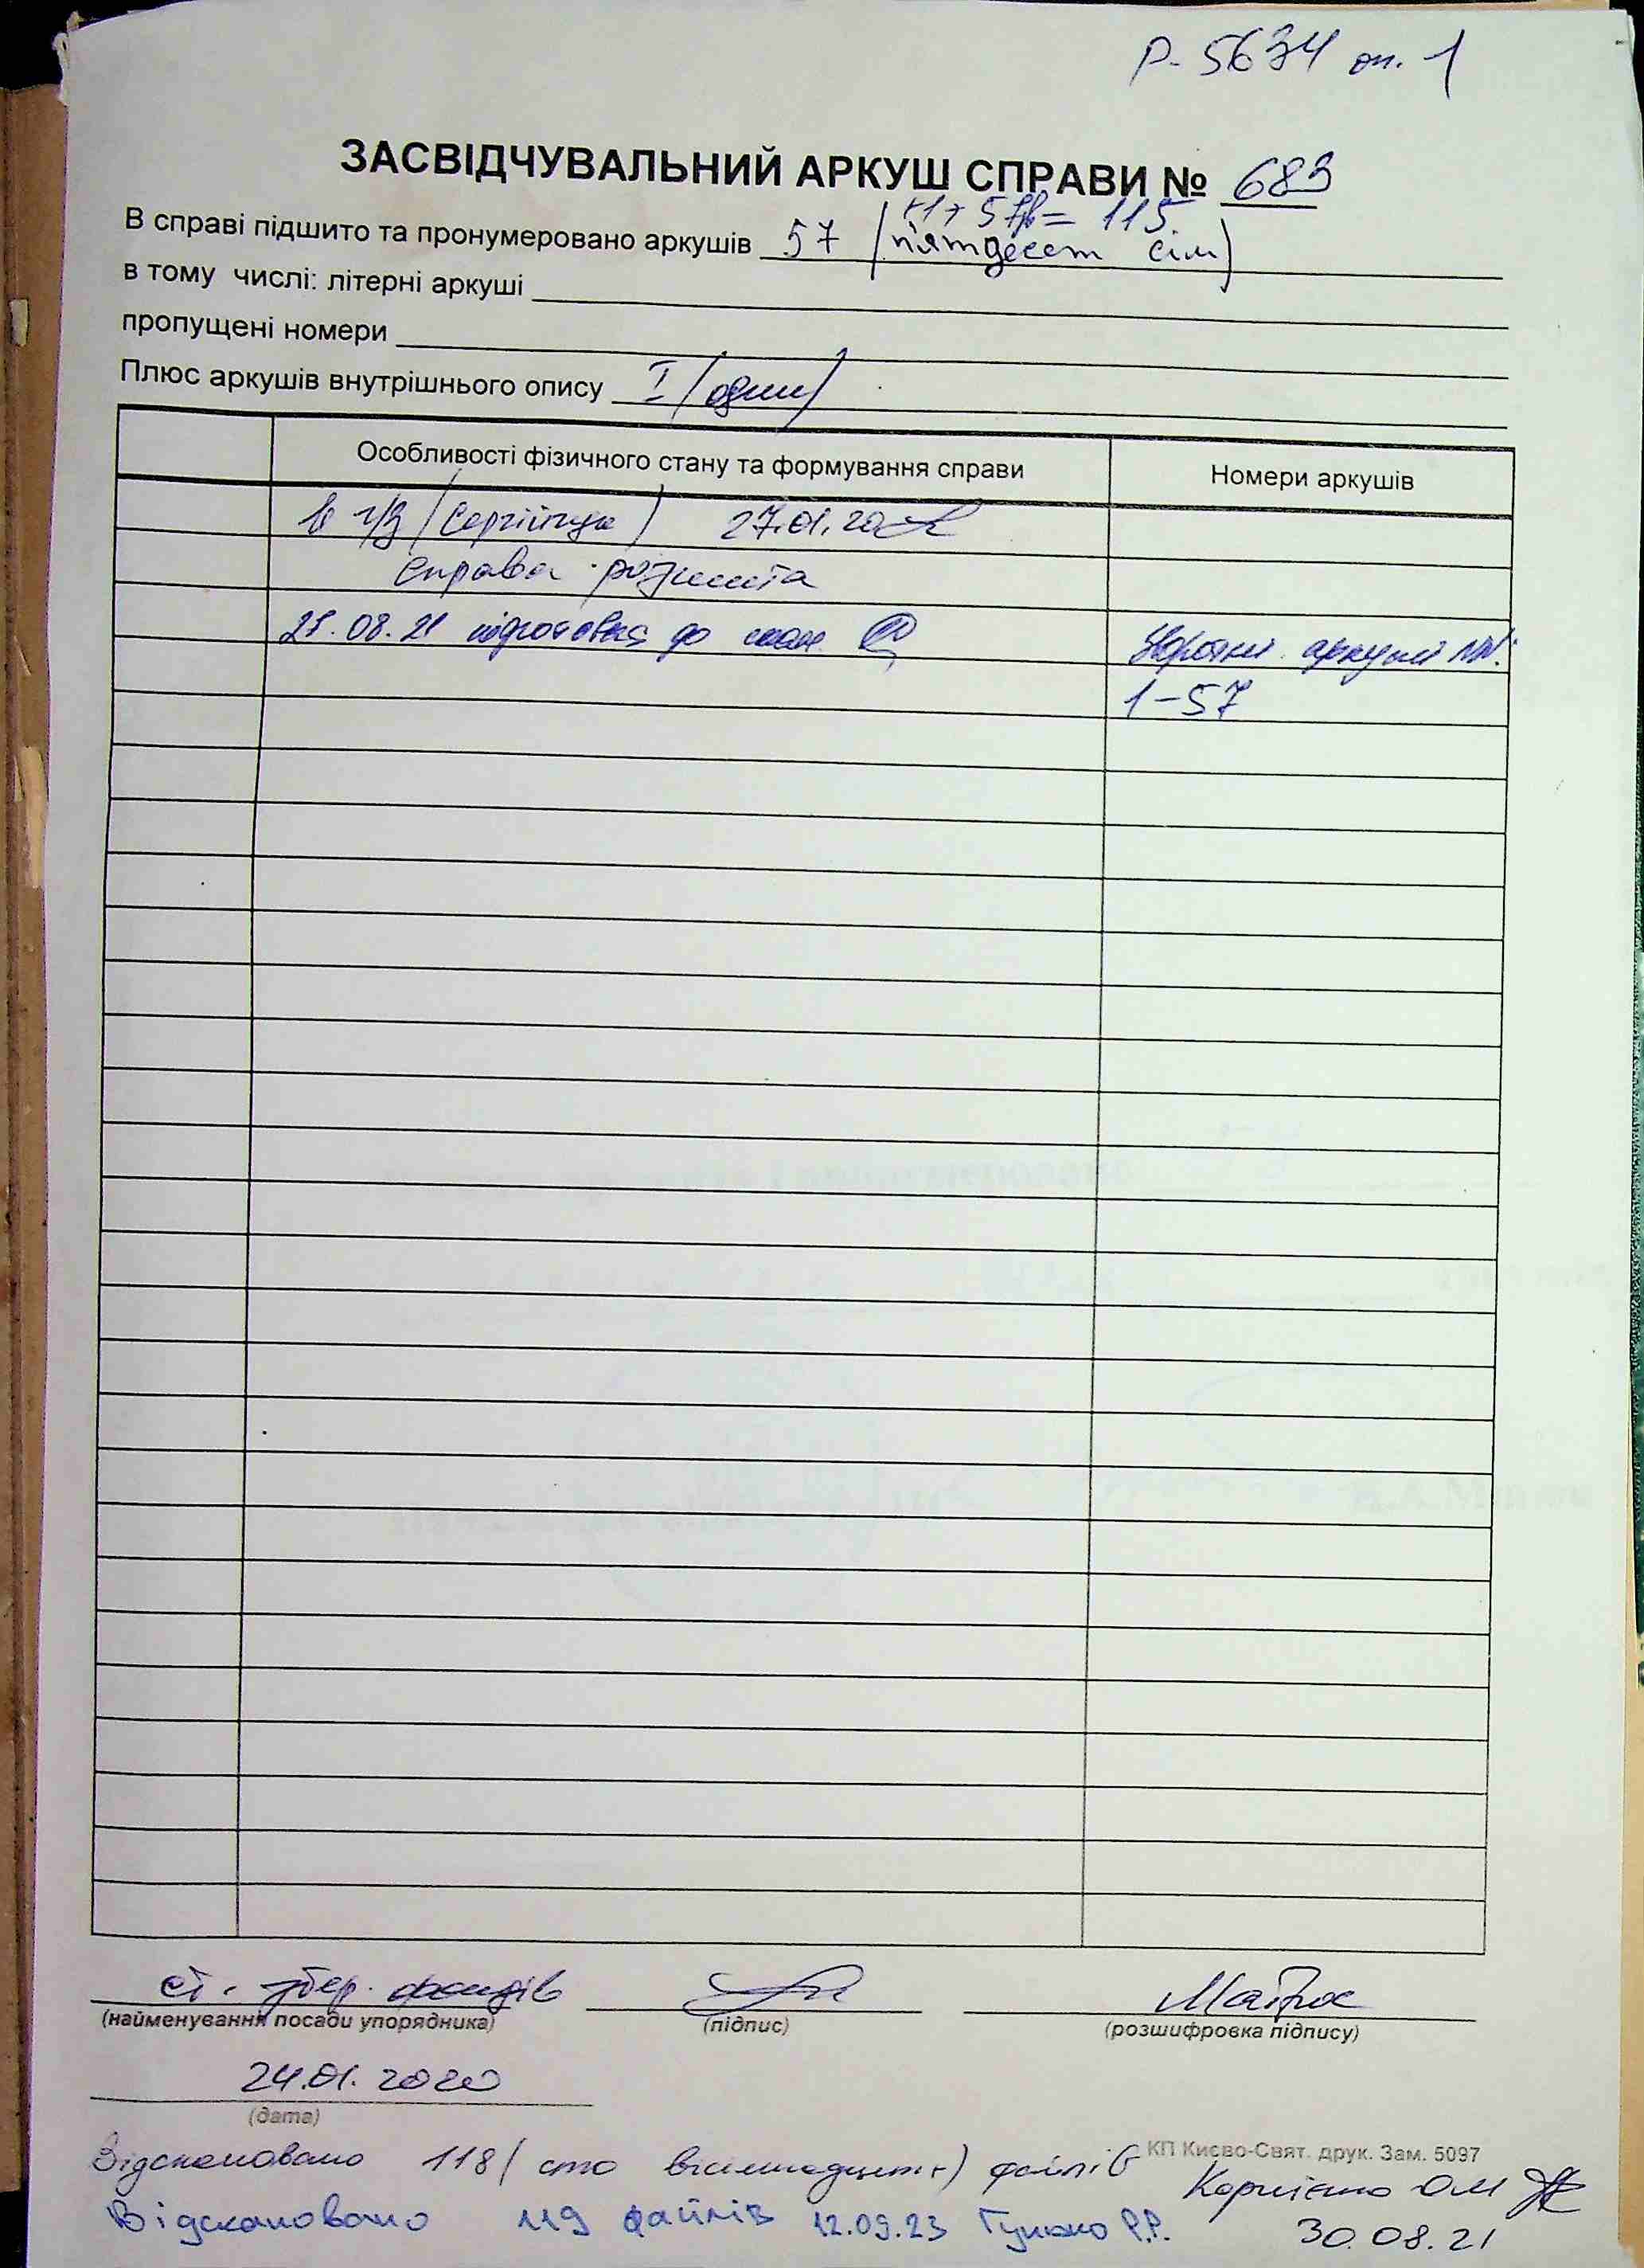 Р-5634 оп. 1
ЗАСВІДЧУВАЛЬНИЙ АРКУШ СПРАВИ № 683
+1+57зв= 115
В справі підшито та пронумеровано аркушів 57 (пятдесят сім)
в тому числі: літерні аркуші
пропущені номери
Плюс аркушів внутрішнього опису I (один)
Особливості фізичного стану та формування справи Номери аркушів
В ч/з 27.01.20
справа розшита
25.08.21 підготовка до скан. Зворотні аркуші №№:
1-57
ст. збер. фондів
(найменування посади упорядника) (підпис) (розшифровка підпису)
24.01.2020
(дата)
КП Києво-Свят. друк. Зам. 5097
Відскановано 118 (сто вісімнадцять) файлів Корнієнко О.М
Відскановано 119 файлів 12.09.23 Р.Р. 30.08.21